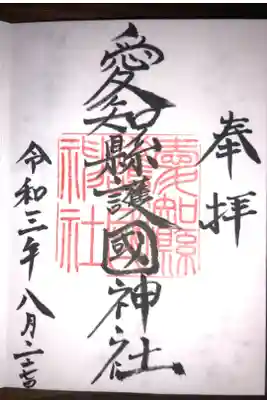 奉拝
愛知縣護國神社
愛知縣護國神社
令和三年八月二十二日